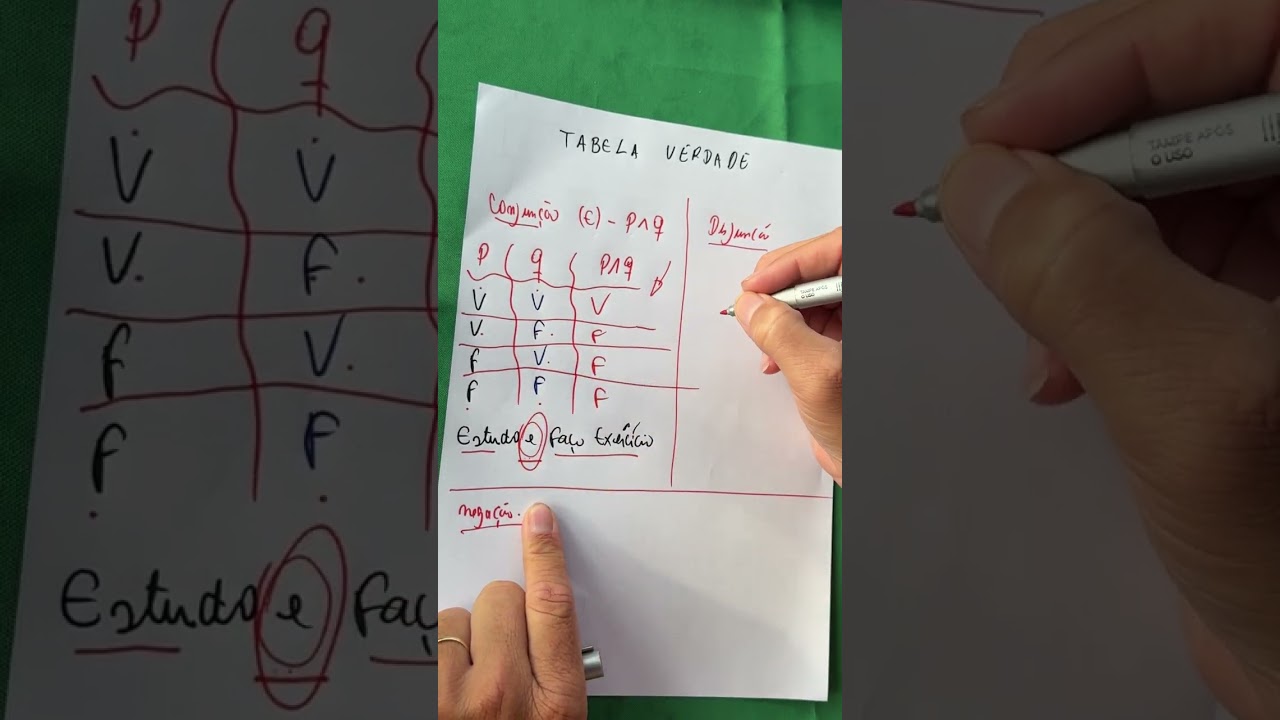 TABELA VERDADE
Conjunção (E) - P∧q
P q P∧q
V V V
V. F. F
F V. F
F F F
Estudo e faço Exercício
Disjunção
negação.
TAMPE APÓS
O USO